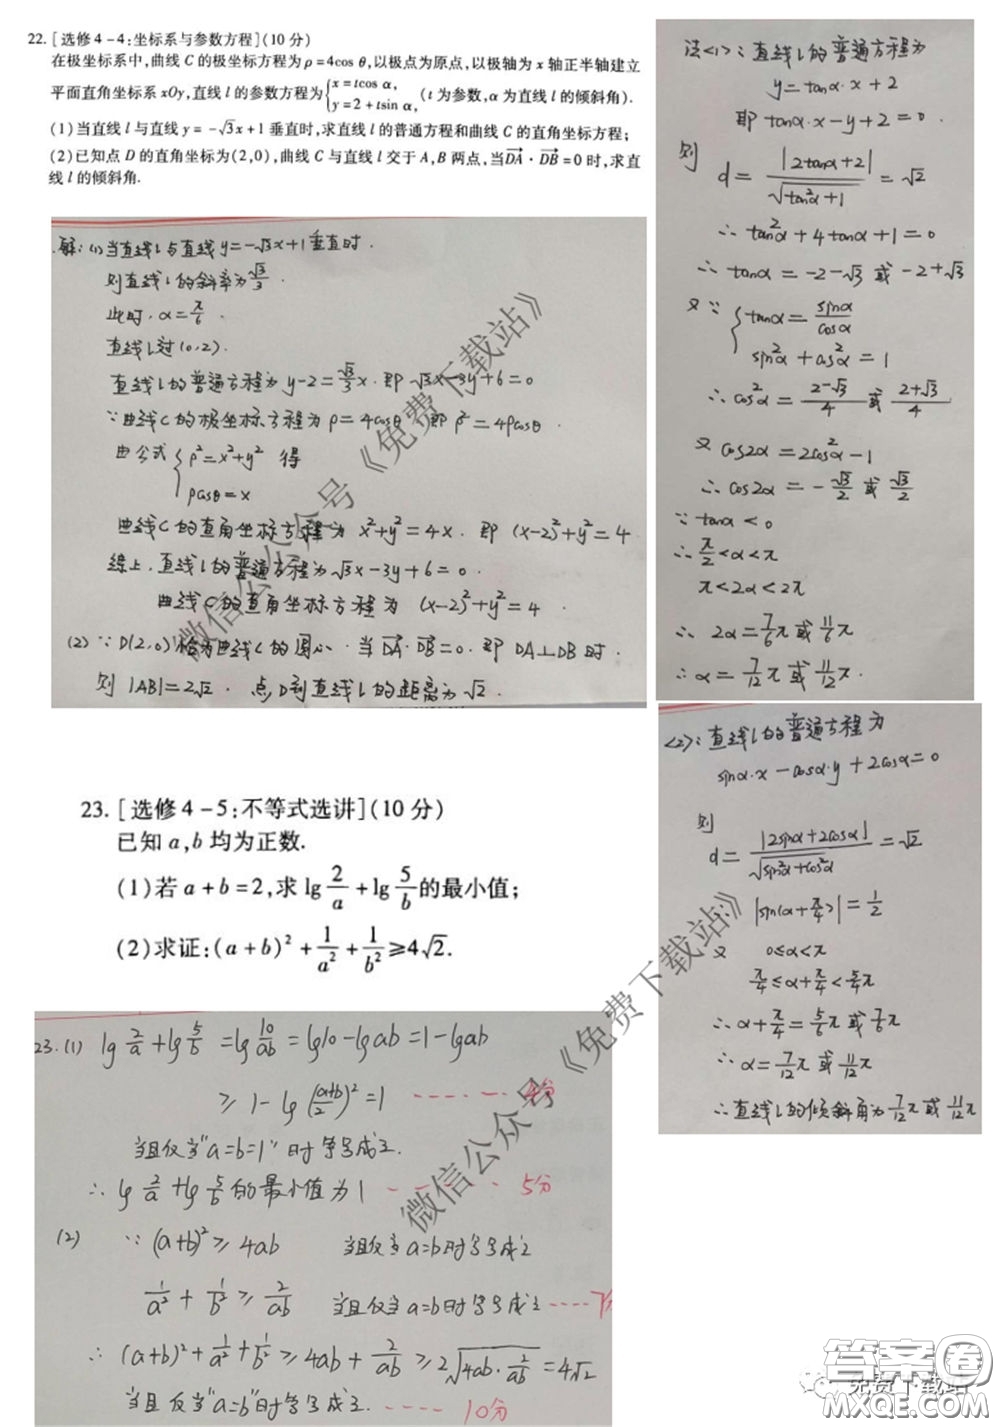 22.[选修4-4:坐标系与参数方程](10分)
在极坐标系中,曲线C的极坐标方程为ρ=4cos θ,以极点为原点,以极轴为x轴正半轴建立
平面直角坐标系xOy,直线l的参数方程为{x=tcos α, y=2+tsin α, (t为参数,α为直线l的倾斜角).
(1)当直线l与直线y=-√3x+1垂直时,求直线l的普通方程和曲线C的直角坐标方程;
(2)已知点D的直角坐标为(2,0),曲线C与直线l交于A,B两点,当DA·DB=0时,求直
线l的倾斜角.
解:(1)当直线l与直线y=-√3x+1垂直时.
则直线l的斜率为√3/3.
此时,α=π/6.
直线l过(0,2).
直线l的普通方程为y-2=√3/3x.即√3x-3y+6=0
∵曲线C的极坐标方程为ρ=4cosθ,即ρ²=4ρcosθ.
由公式{ρ²=x²+y² 得
ρcosθ=x
曲线C的直角坐标方程为x²+y²=4x.即(x-2)²+y²=4
综上,直线l的普通方程为√3x-3y+6=0.
曲线C的直角坐标方程为(x-2)²+y²=4.
(2)∵D(2,0)恰为曲线C的圆心.当DA·DB=0.即DA⊥DB时.
则|AB|=2√2.点D到直线l的距离为√2.
法<1>:直线l的普通方程为
y=tanα·x+2
即tanα·x-y+2=0.
则
d=|2tanα+2|/√(tan²α+1)=√2
∴tan²α+4tanα+1=0
∴tanα=-2-√3或-2+√3
又∵{tanα=sinα/cosα
sin²α+cos²α=1
∴cos²α=(2-√3)/4或(2+√3)/4
又cos2α=2cos²α-1
∴cos2α=-√3/2或√3/2
∵tanα<0
∴π/2<α<π
π<2α<2π
∴2α=7/6π或11/6π
∴α=7/12π或11/12π.
<2>:直线l的普通方程为
sinα·x-cosα·y+2cosα=0
则
d=|2sinα+2cosα|/√(sin²α+cos²α)=√2
∴|sin(α+π/4)|=1/2
又 0≤α<π
π/4≤α+π/4<5/4π
∴α+π/4=5/6π或7/6π
∴α=7/12π或11/12π
∴直线l的倾斜角为7/12π或11/12π
23.[选修4-5:不等式选讲](10分)
已知a,b均为正数.
(1)若a+b=2,求lg 2/a+lg 5/b的最小值;
(2)求证:(a+b)²+1/a²+1/b²≥4√2.
23.(1) lg 2/a+lg 5/b=lg 10/ab=lg10-lgab=1-lgab
≥1-lg((a+b)/2)²=1 ------ 4分
当且仅当"a=b=1"时等号成立.
∴lg 2/a+lg 5/b的最小值为1 ------ 5分
(2) ∵(a+b)²≥4ab 当且仅当a=b时等号成立
1/a²+1/b²≥2/ab 当且仅当a=b时等号成立 ----7分
∴(a+b)²+1/a²+1/b²≥4ab+2/ab≥2√(4ab·2/ab)=4√2
当且仅当"a=b"时等号成立. ---- 10分
微信公众号《免费下载站》
微信公众号《免费下载站》
免费下载站
答案圈